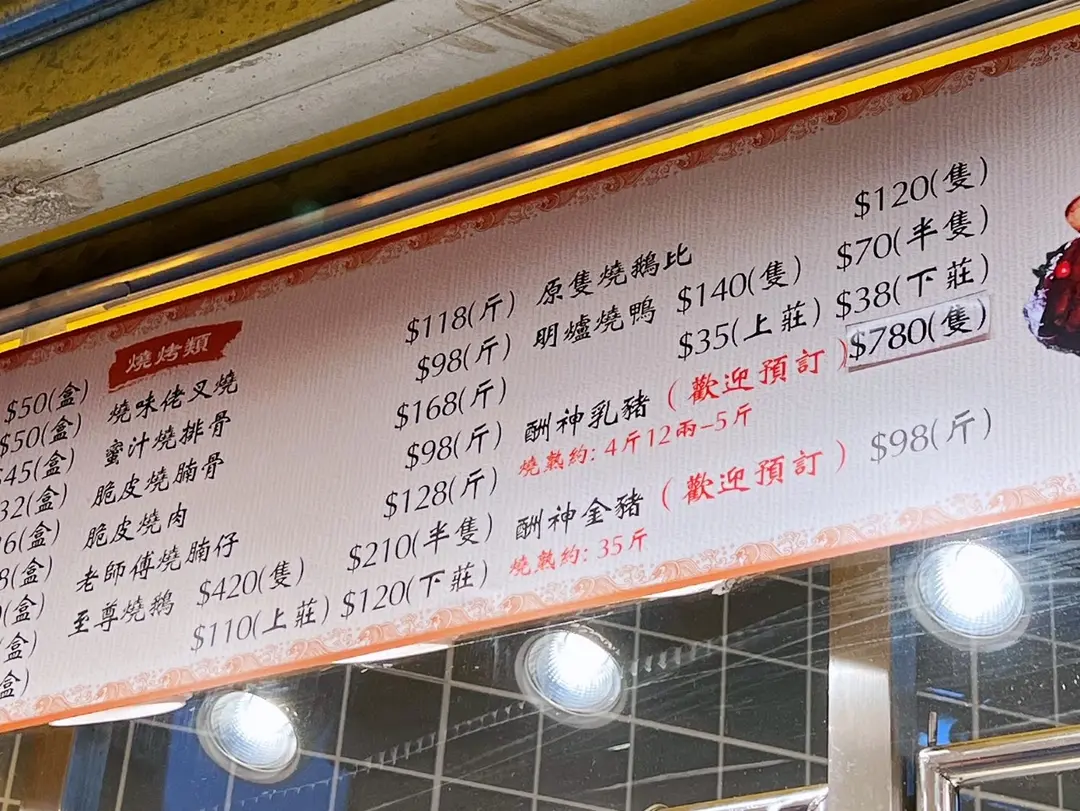 $50(盒)
$50(盒)
$45(盒)
32(盒)
6(盒)
8(盒)
(盒)
(盒)
盒)
燒烤類
燒味佬叉燒 $118(斤)
蜜汁燒排骨 $98(斤)
脆皮燒腩骨 $168(斤)
脆皮燒肉 $98(斤)
老師傅燒腩仔 $128(斤)
至尊燒鵝 $420(隻) $210(半隻)
$110(上莊) $120(下莊)
原隻燒鵝比 $120(隻)
明爐燒鴨 $140(隻) $70(半隻)
$35(上莊) $38(下莊)
酬神乳豬 (歡迎預訂) $780(隻)
燒熟約: 4斤12兩-5斤
酬神金豬 (歡迎預訂) $98(斤)
燒熟約: 35斤